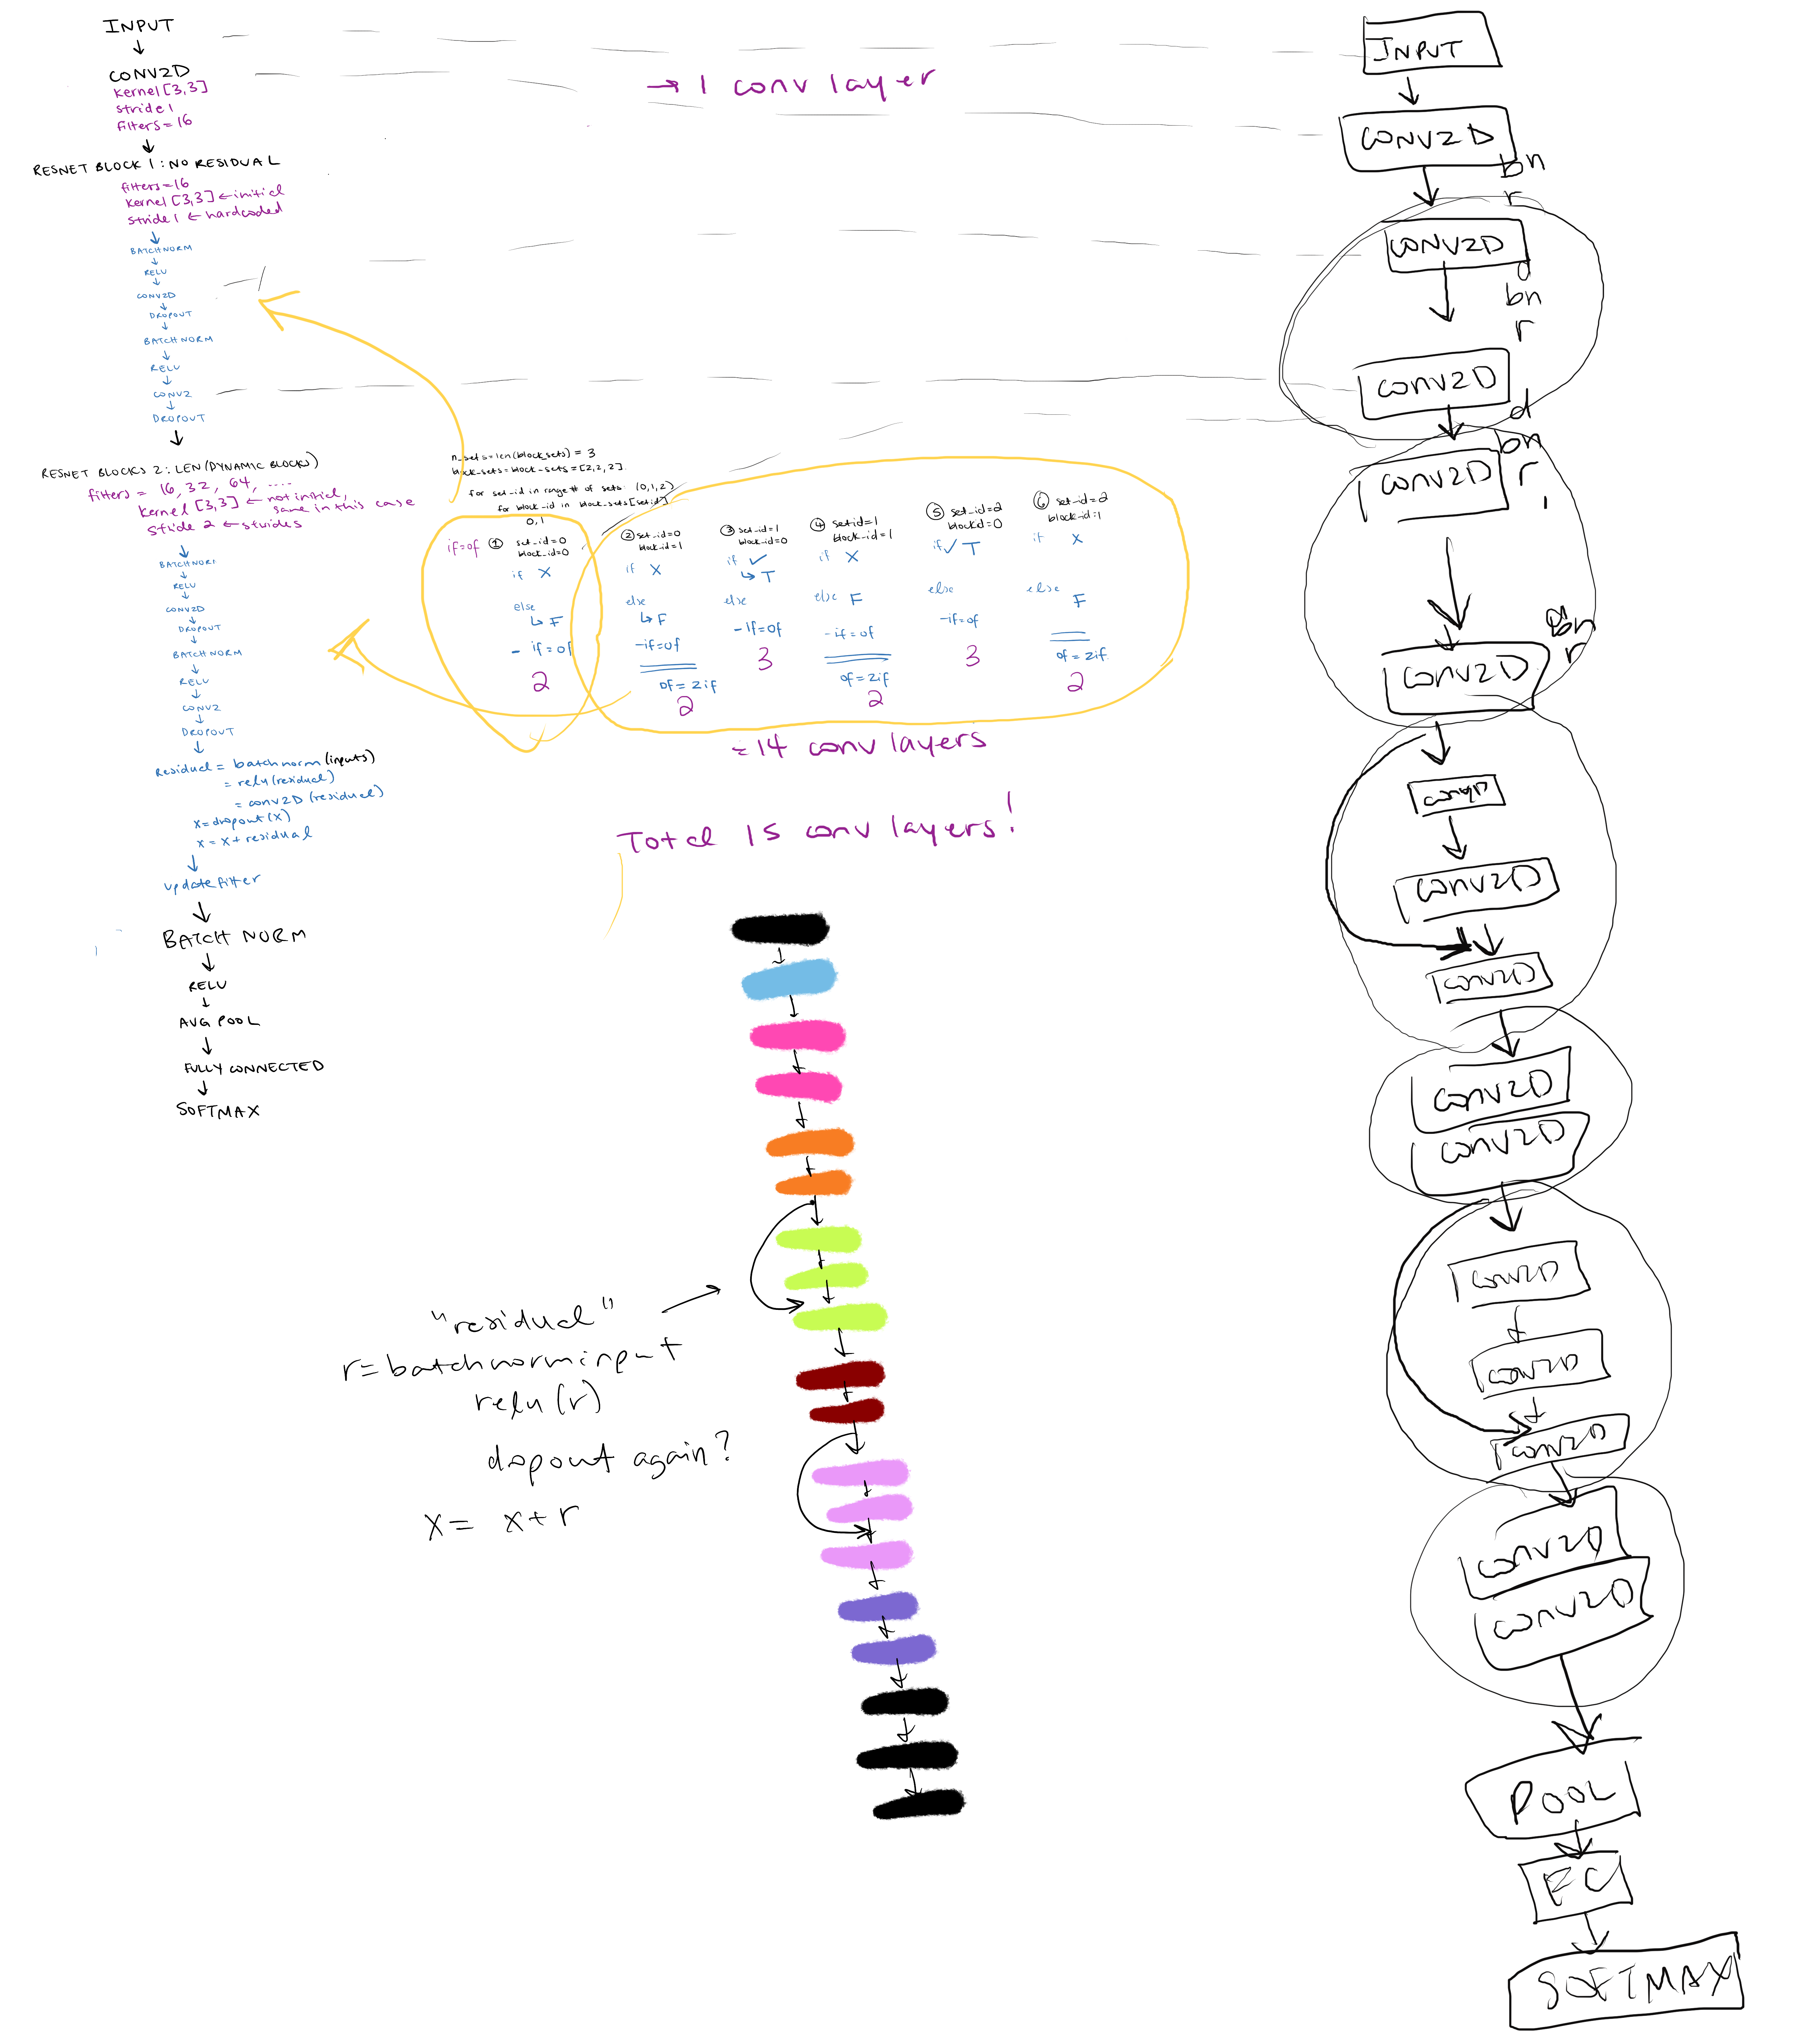 INPUT
CONV2D
kernel [3,3]
stride 1
filters = 16
RESNET BLOCK 1 : NO RESIDUAL
filters = 16
kernel [3,3] ← initial
stride 1 ← hardcoded
BATCHNORM
RELU
CONV2D
DROPOUT
BATCH NORM
RELU
CONV2
DROPOUT
RESNET BLOCKS 2 : LEN(DYNAMIC BLOCKS)
filters = 16, 32, 64, ....
kernel [3,3] ← not initial,
same in this case
stride 2 ← strides
BATCHNORM
RELU
CONV2D
DROPOUT
BATCH NORM
RELU
CONV2
DROPOUT
Residual = batchnorm (inputs)
= relu (residual)
= conv2D (residual)
x = dropout (x)
x = x + residual
update filter
BATCH NORM
RELU
AVG POOL
FULLY CONNECTED
SOFTMAX
→ 1 conv layer
n_sets = len(block_sets) = 3
block_sets = block_sets = [2,2,2].
for set_id in range # of sets: (0,1,2)
for block_id in block_sets[setid]
0,1
if=of
① set_id=0
block_id=0
if X
else
↳ F
- if=of
2
② set_id=0
block_id=1
if X
else
↳ F
-if=of
of = 2if
2
③ set_id=1
block_id=0
if ✓
↳ T
else
-if=of
3
④ setid=1
block_id=1
if X
else F
-if=of
of=2if
2
⑤ set_id=2
blockid=0
if ✓ T
else
-if=of
3
⑥ set_id=2
block_id=1
if X
else
F
of = 2if
2
= 14 conv layers
Total 15 conv layers!
"residual"
r = batchnorm input
relu (r)
dopout again?
x = x + r
INPUT
CONV2D
bn
r
CONV2D
d
bn
r
CONV2D
d
bn
r
CONV2D
bn
r
CONV2D
CONV2D
CONV2D
CONV2D
CONV2D
CONV2D
CONV2D
CONV2D
CONV2D
CONV2D
CONV2D
POOL
FC
SOFTMAX